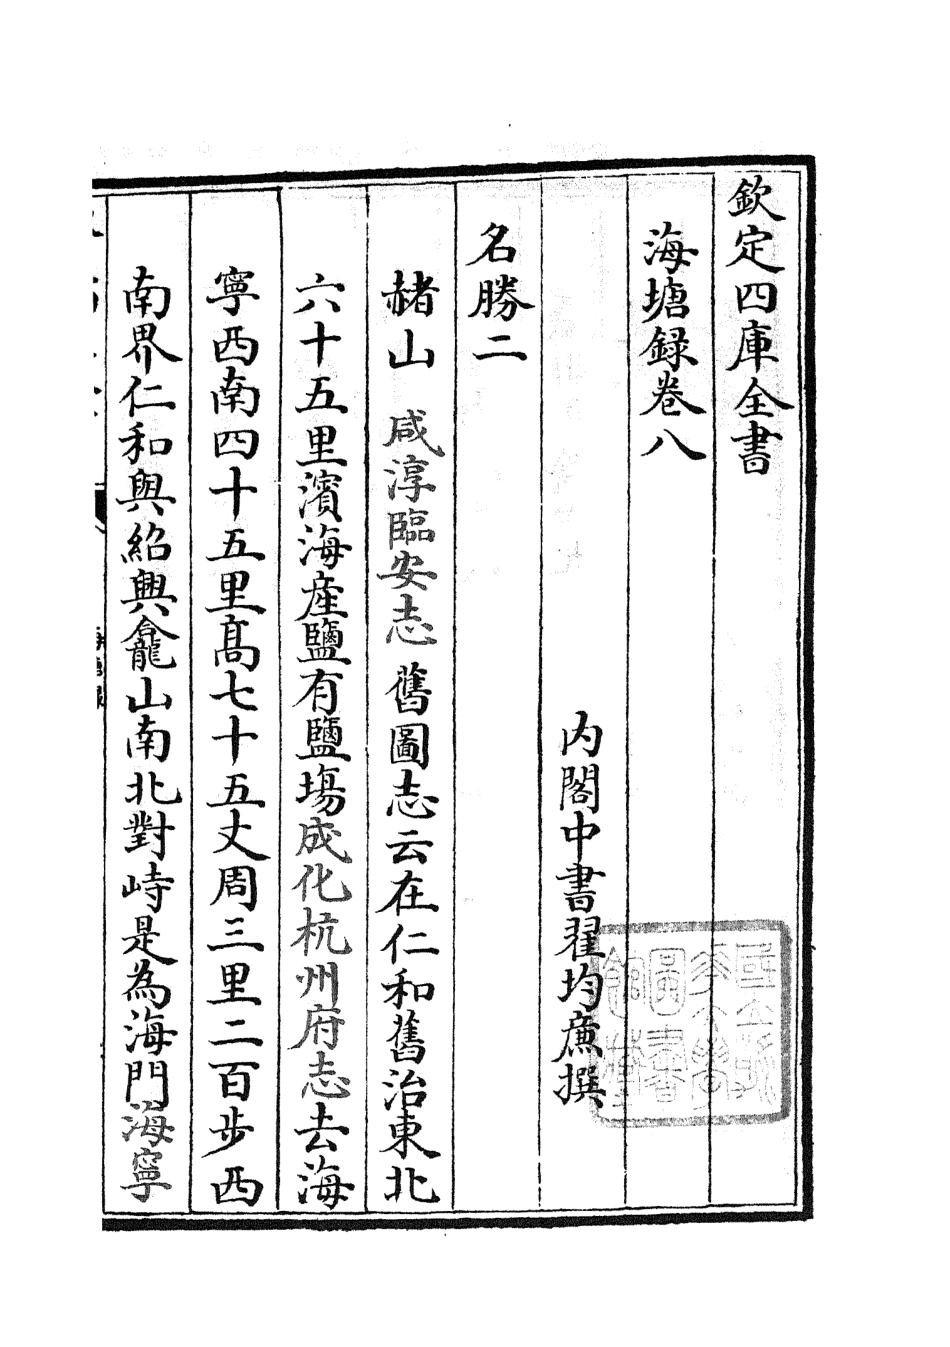 欽定四庫全書
海塘録卷八
内閣中書翟均亷撰
名勝二
赭山 咸淳臨安志舊圖志云在仁和舊治東北
六十五里濱海産鹽有鹽場成化杭州府志去海
寧西南四十五里髙七十五丈周三里二百步西
南界仁和與紹興龕山南北對峙是為海門海寧